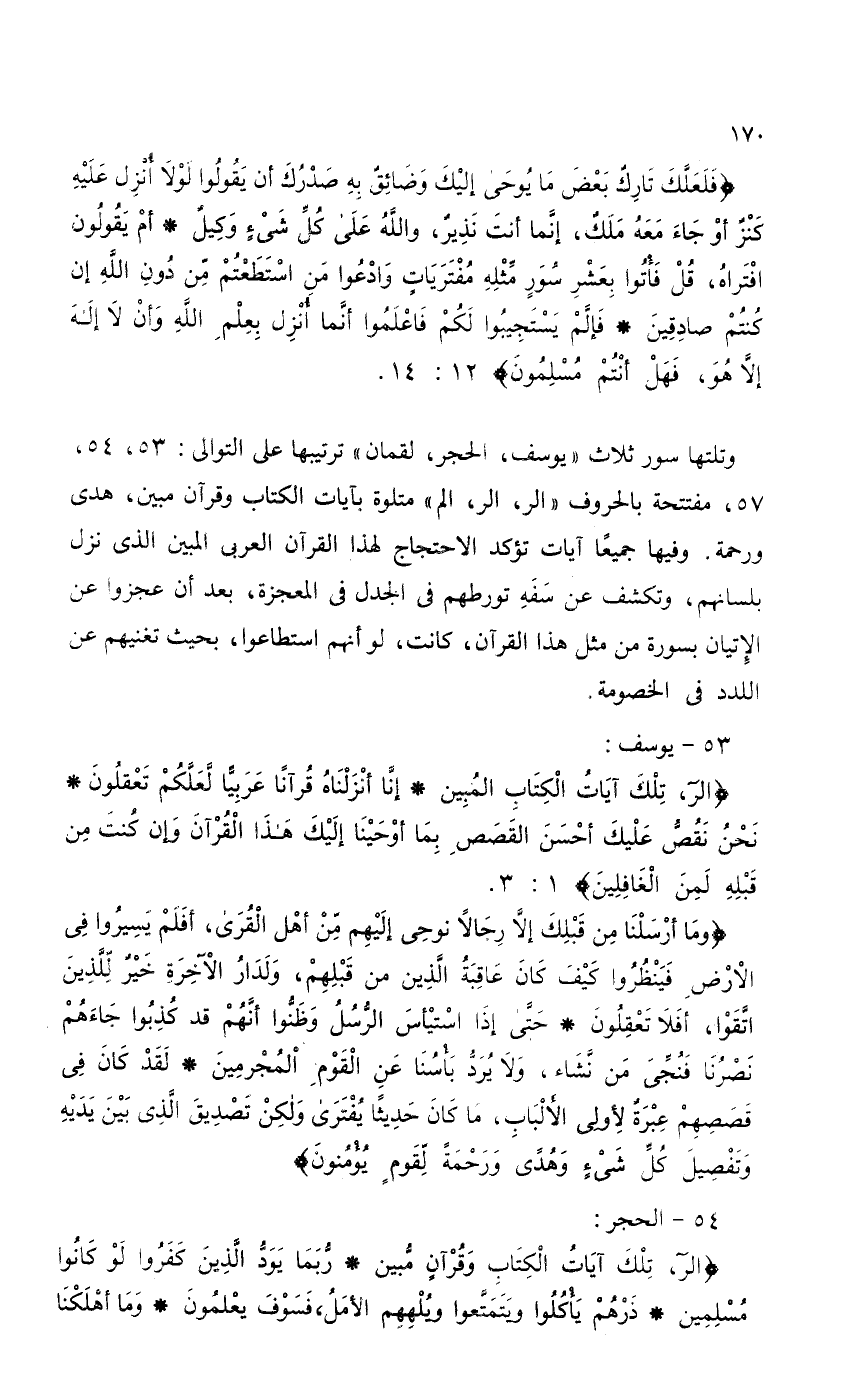 ١٧٠
﴿فَلَعَلَّكَ تَارِكٌ بَعْضَ مَا يُوحَىٰ إليْكَ وَضَائِقٌ بِهِ صَدْرُكَ أن يَقُولُوا لَوْلَا أُنْزِل عَلَيْهِ
كَنْزٌ أوْ جَاءَ مَعَهُ مَلَكٌ، إنَّما أنتَ نَذِيرٌ، واللَّهُ عَلَىٰ كُلِّ شَىْءٍ وَكِيلٌ * أمْ يَقُولُون
افْتَراهُ، قُلْ فَأْتُوا بِعَشْرِ سُوَرٍ مِّثْلِهِ مُفْتَرَيَاتٍ وَادْعُوا مَنِ اسْتَطَعْتُمْ مِّن دُونِ اللَّهِ إن
كُنتُمْ صادِقِينَ * فَإلَّمْ يَسْتَجِيبُوا لَكُمْ فَاعْلَمُوا أنَّما أُنْزِل بِعِلْمِ اللَّهِ وَأنْ لَا إلَـٰهَ
إلاَّ هُوَ، فَهَلْ أنْتُمْ مُسْلِمُونَ﴾ ١٢ : ١٤.
وتلتها سور ثلاث «يوسف، الحجر، لقمان» ترتيبها على التوالى: ٥٣، ٥٤،
٥٧، مفتتحة بالحروف «الر، الر، الم» متلوة بآيات الكتاب وقرآن مبين، هدى
ورحمة. وفيها جميعًا آيات تؤكد الاحتجاج لهذا القرآن العربى المبين الذى نزل
بلسانهم، وتكشف عن سَفَهِ تورطهم فى الجدل فى المعجزة، بعد أن عجزوا عن
الإتيان بسورة من مثل هذا القرآن، كانت، لو أنهم استطاعوا، بحيث تغنيهم عن
اللدد فى الخصومة.
٥٣ – يوسف:
﴿الرَ، تِلْكَ آيَاتُ الْكِتَابِ المُبِين * إنَّا أنْزَلْنَاهُ قُرآنًا عَرَبِيًّا لَّعَلَّكُمْ تَعْقلُونَ *
نَحْنُ نَقُصُّ عَلَيْكَ أحْسَنَ القَصَصِ بِمَا أوْحَيْنَا إلَيْكَ هَـٰذَا الْقُرْآنَ وَإن كُنتَ مِن
قَبْلِهِ لَمِنَ الْغَافِلِينَ﴾ ١ : ٣.
﴿ومَا أرْسَلْنَا مِن قَبْلِكَ إلاَّ رِجَالاً نوحِى إلَيْهِم مِّنْ أهْلِ الْقُرَىٰ، أفَلَمْ يَسِيرُوا فِى
الْارْضِ فَيَنْظُرُوا كَيْفَ كَانَ عَاقِبَةُ الَّذِين من قَبْلِهِمْ، وَلَدَارُ الْآخِرَةِ خَيْرٌ لِّلَّذِينَ
اتَّقَوْا، أفَلَا تَعْقِلُونَ * حَتَّىٰ إذَا اسْتَيْأسَ الرُّسُلُ وَظَنُّوا أنَّهُمْ قد كُذِبُوا جَاءَهُمْ
نَصْرُنَا فَنُجِّىَ مَن نَّشَاء، وَلَا يُرَدُّ بَأْسُنَا عَنِ الْقَوْمِ الْمُجْرِمِينَ * لَقَدْ كَانَ فِى
قَصَصِهِمْ عِبْرَةٌ لِأولِى الأَلْبَابِ، مَا كَانَ حَدِيثًا يُفْتَرَىٰ وَلٰكِنْ تَصْدِيقَ الَّذِى بَيْنَ يَدَيْهِ
وَتَفْصِيلَ كُلِّ شَىْءٍ وَهُدًى وَرَحْمَةً لِّقَومٍ يُؤْمنونَ﴾
٥٤ – الحجر:
﴿الرَ، تِلْكَ آيَاتُ الْكِتَابِ وَقُرْآنٍ مُّبين * رُّبَمَا يَوَدُّ الَّذِينَ كَفَرُوا لَوْ كَانُوا
مُسْلِمِين * ذَرْهُمْ يَأْكُلُوا ويَتَمَتَّعوا ويُلْهِهِم الأمَلُ، فَسَوْفَ يعْلمُونَ * وَمَا أهْلَكْنَا